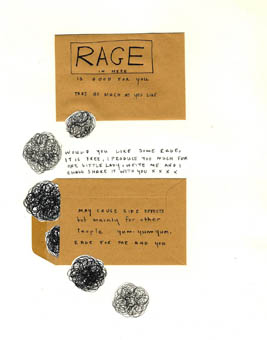 RAGE
IN HERE
IS GOOD FOR YOU
TAKE AS MUCH AS YOU LIKE
WOULD YOU LIKE SOME RAGE,
IT IS FREE, I PRODUCE TOO MUCH FOR
ONE LITTLE LADY, WRITE ME AND I
SHARE IT WITH YOU X X X X
MAY CAUSE SIDE EFFECTS
but mainly for other
people yum.yum.yum.
RAGE FOR ME AND YOU